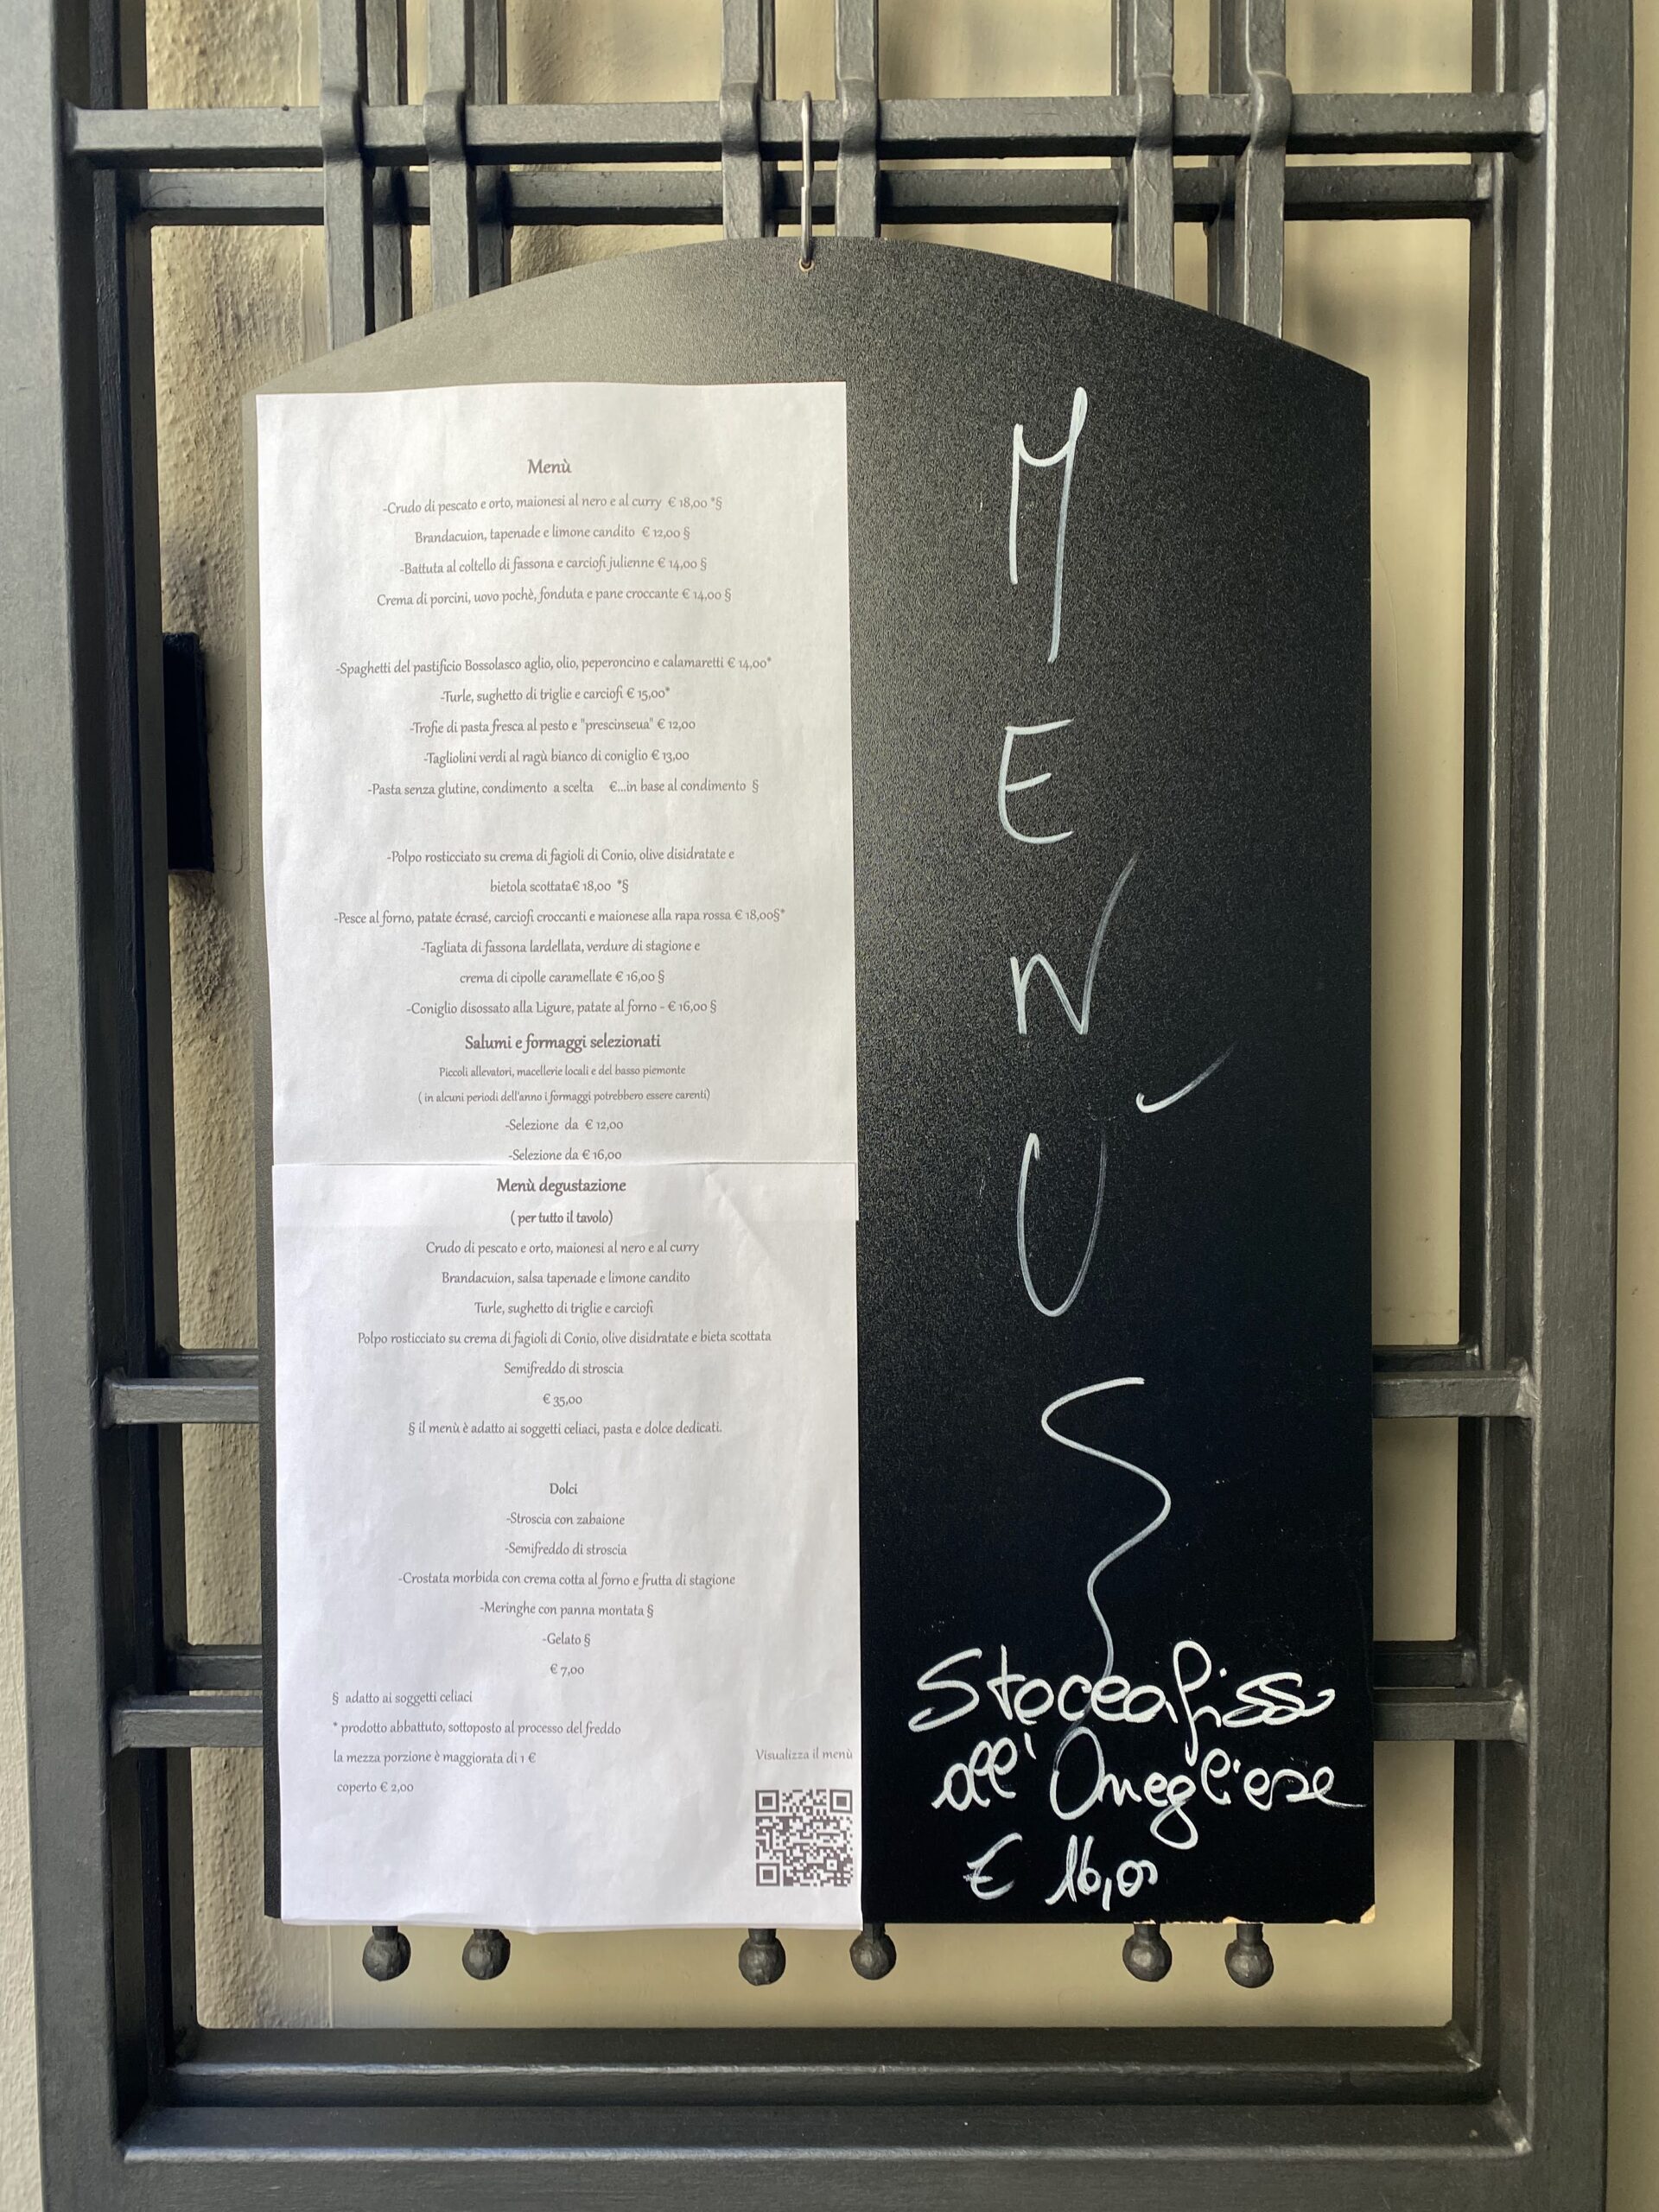 Menù
-Crudo di pescato e orto, maionesi al nero e al curry € 18,00 *§
Brandacuion, tapenade e limone candito € 12,00 §
-Battuta al coltello di fassona e carciofi julienne € 14,00 §
Crema di porcini, uovo pochè, fonduta e pane croccante € 14,00 §
-Spaghetti del pastificio Bossolasco aglio, olio, peperoncino e calamaretti € 14,00*
-Turle, sughetto di triglie e carciofi € 15,00*
-Trofie di pasta fresca al pesto e "prescinseua" € 12,00
-Tagliolini verdi al ragù bianco di coniglio € 13,00
-Pasta senza glutine, condimento a scelta €...in base al condimento §
-Polpo rosticciato su crema di fagioli di Conio, olive disidratate e
bietola scottata€ 18,00 *§
-Pesce al forno, patate écrasé, carciofi croccanti e maionese alla rapa rossa € 18,00§*
-Tagliata di fassona lardellata, verdure di stagione e
crema di cipolle caramellate € 16,00 §
-Coniglio disossato alla Ligure, patate al forno - € 16,00 §
Salumi e formaggi selezionati
Piccoli allevatori, macellerie locali e del basso piemonte
( in alcuni periodi dell'anno i formaggi potrebbero essere carenti)
-Selezione da € 12,00
-Selezione da € 16,00
Menù degustazione
( per tutto il tavolo)
Crudo di pescato e orto, maionesi al nero e al curry
Brandacuion, salsa tapenade e limone candito
Turle, sughetto di triglie e carciofi
Polpo rosticciato su crema di fagioli di Conio, olive disidratate e bieta scottata
Semifreddo di stroscia
€ 35,00
§ il menù è adatto ai soggetti celiaci, pasta e dolce dedicati.
Dolci
-Stroscia con zabaione
-Semifreddo di stroscia
-Crostata morbida con crema cotta al forno e frutta di stagione
-Meringhe con panna montata §
-Gelato §
€ 7,00
§ adatto ai soggetti celiaci
* prodotto abbattuto, sottoposto al processo del freddo
la mezza porzione è maggiorata di 1 €
coperto € 2,00
Visualizza il menù
MENÙ
Stoccafisso
all'Onegliese
€ 16,00